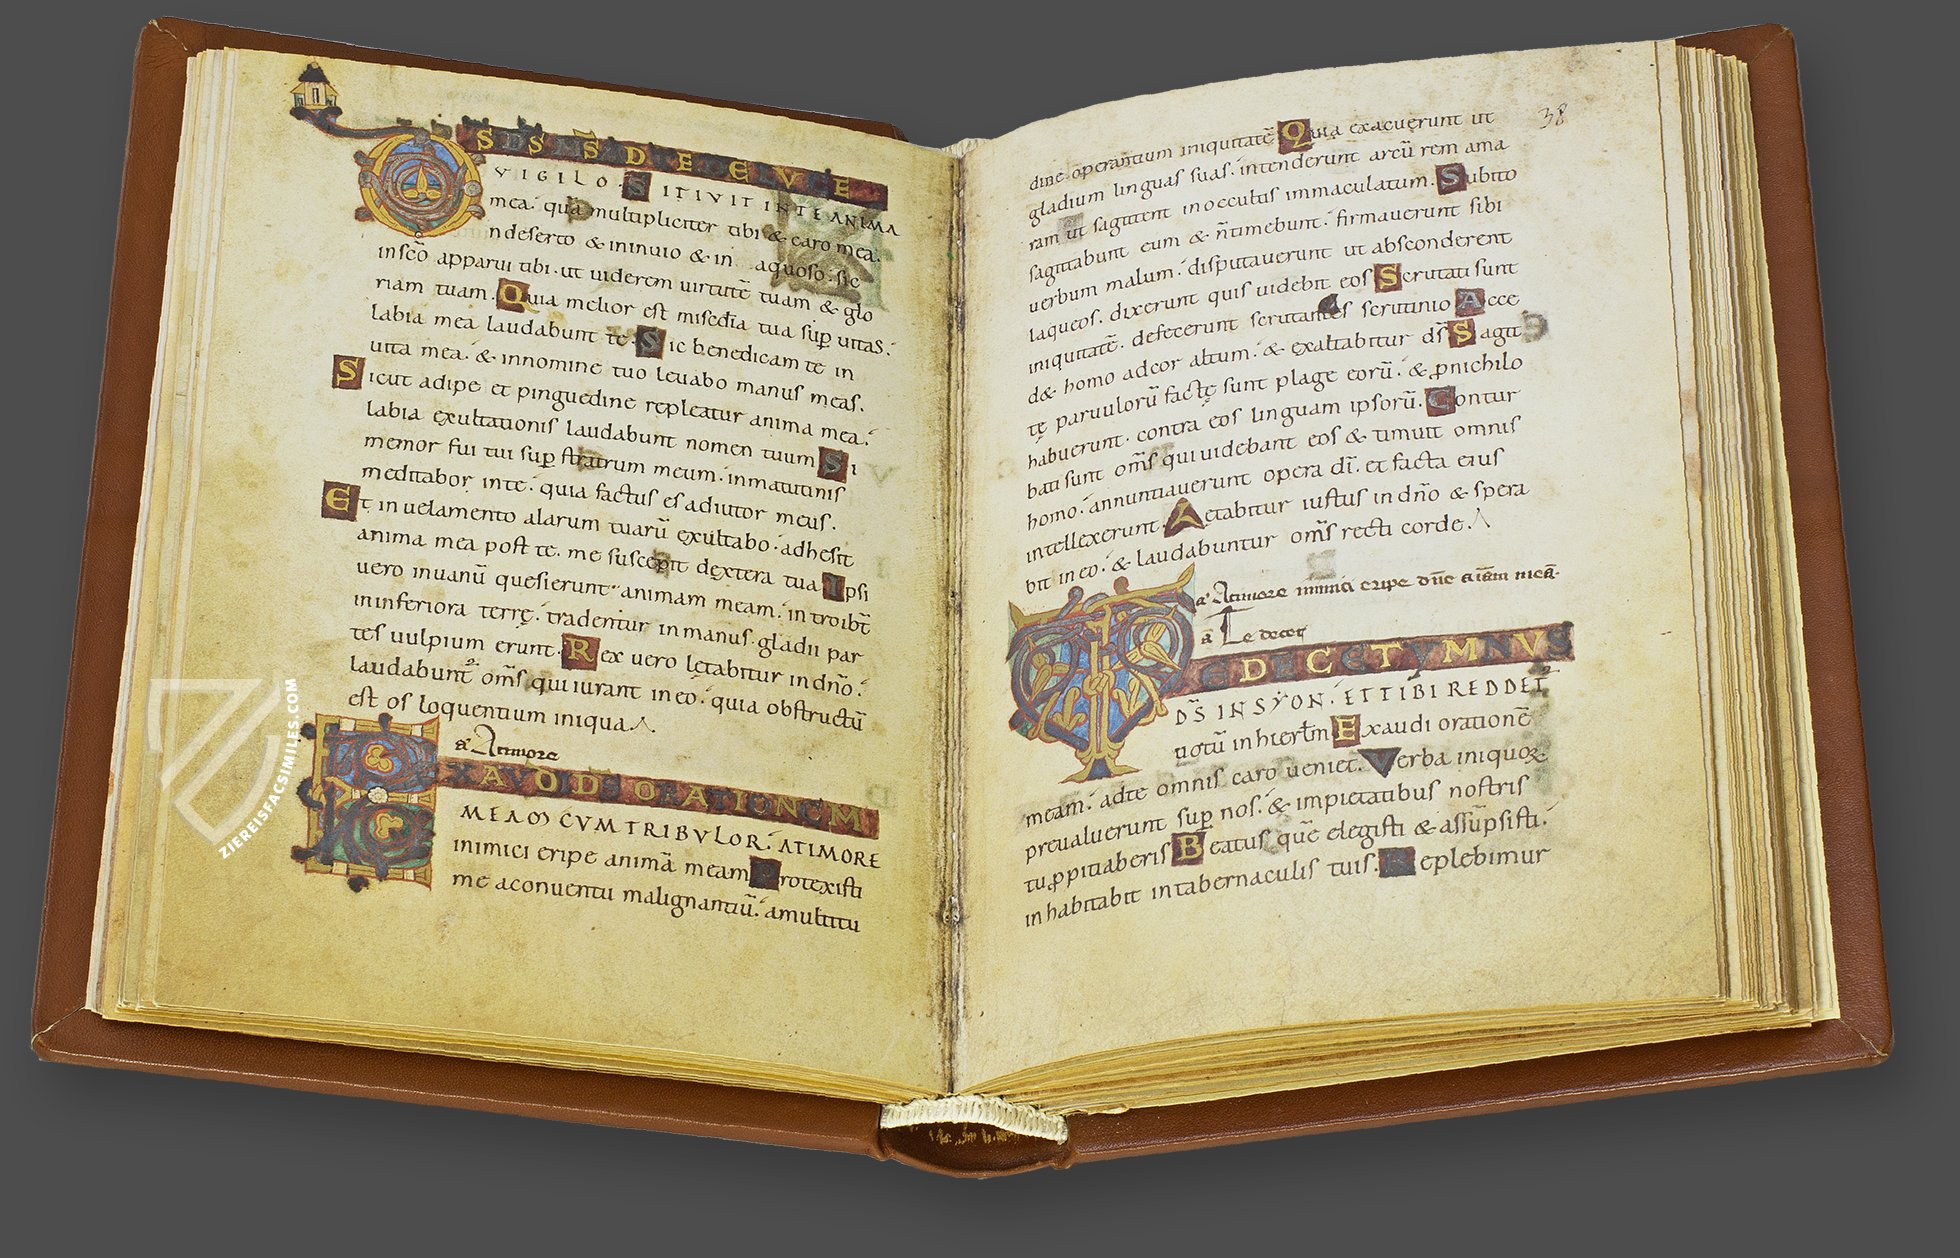 DS DS MS AD TE DE LVCE
VIGILO. SITIVIT IN TE ANIMA
mea. quā multipliciter tibi & caro mea.
Indeserto & ininuio & in aquoso. sic
inscō apparui tibi. ut uiderem uirtutē tuam & glo
riam tuam. Quia melior est misedīa tua sup uitas.
labia mea laudabunt te. Sic benedicam te in
uita mea. & innomine tuo leuabo manus meas.
Sicut adipe et pinguedine repleatur anima mea.
labia exultationis laudabunt nomen tuum Si
memor fui tui sup stratrum meum. inmatutinis
meditabor inte. quia factus es adiutor meus.
Et inuelamento alarum tuarū exultabo. adhesit
anima mea post te. me suscepit dextera tua Ipsi
uero inuanū quesierunt animam meam. introibt̄
ininferiora terrę. tradentur inmanus gladii par
tes uulpium erunt. Rex uero lętabitur indn̄o.
laudabunt̄ om̄s quiiurant ineo. quia obstructū
est os loquentium iniqua
a Atimore
EXAVDI DS ORATIONEM
MEAM CVM TRIBVLOR. ATIMORE
inimici eripe animā meam Protexisti
me aconuentu malignantiū. amultitu
38
dine operantium iniquitatē Quia exacuerunt ut
gladium linguas suas. intenderunt arcū rem ama
ram ut sagittent inoccultis immaculatum. Subito
sagittabunt eum & n̄timebunt. firmauerunt sibi
uerbum malum. disputauerunt ut absconderent
laqueos. dixerunt quis uidebit eos Scrutati sunt
iniquitatē. defecerunt scrutantes scrutinio Acce
d& homo adcor altum. & exaltabitur ds̄ Sagit
tę paruulorū factę sunt plage eorū. & pnichilo
habuerunt. contra eos linguam ipsorū. Contur
bati sunt om̄s quiuidebant eos & timuit omnis
homo. annuntiauerunt opera dī. et facta eius
intellexerunt. Lętabitur iustus indn̄o & spera
bit ineo. & laudabuntur om̄s recti corde.
a Atimore inimici eripe dn̄e aīam meā.
a Te decet
TE DECET YMNVS
DS̄ INSYON. ETTIBI REDDET
uotū inhierlm̄ Exaudi orationē
meam. adte omnis caro ueniet. Verba iniquoꝝ
preualuerunt sup nos. & impietatibus nostris
tu ppitiaberis Beatus quē elegisti & assūpsisti.
inhabitabit intabernaculis tuis. Replebimur
ZIEREISFACSIMILES.COM